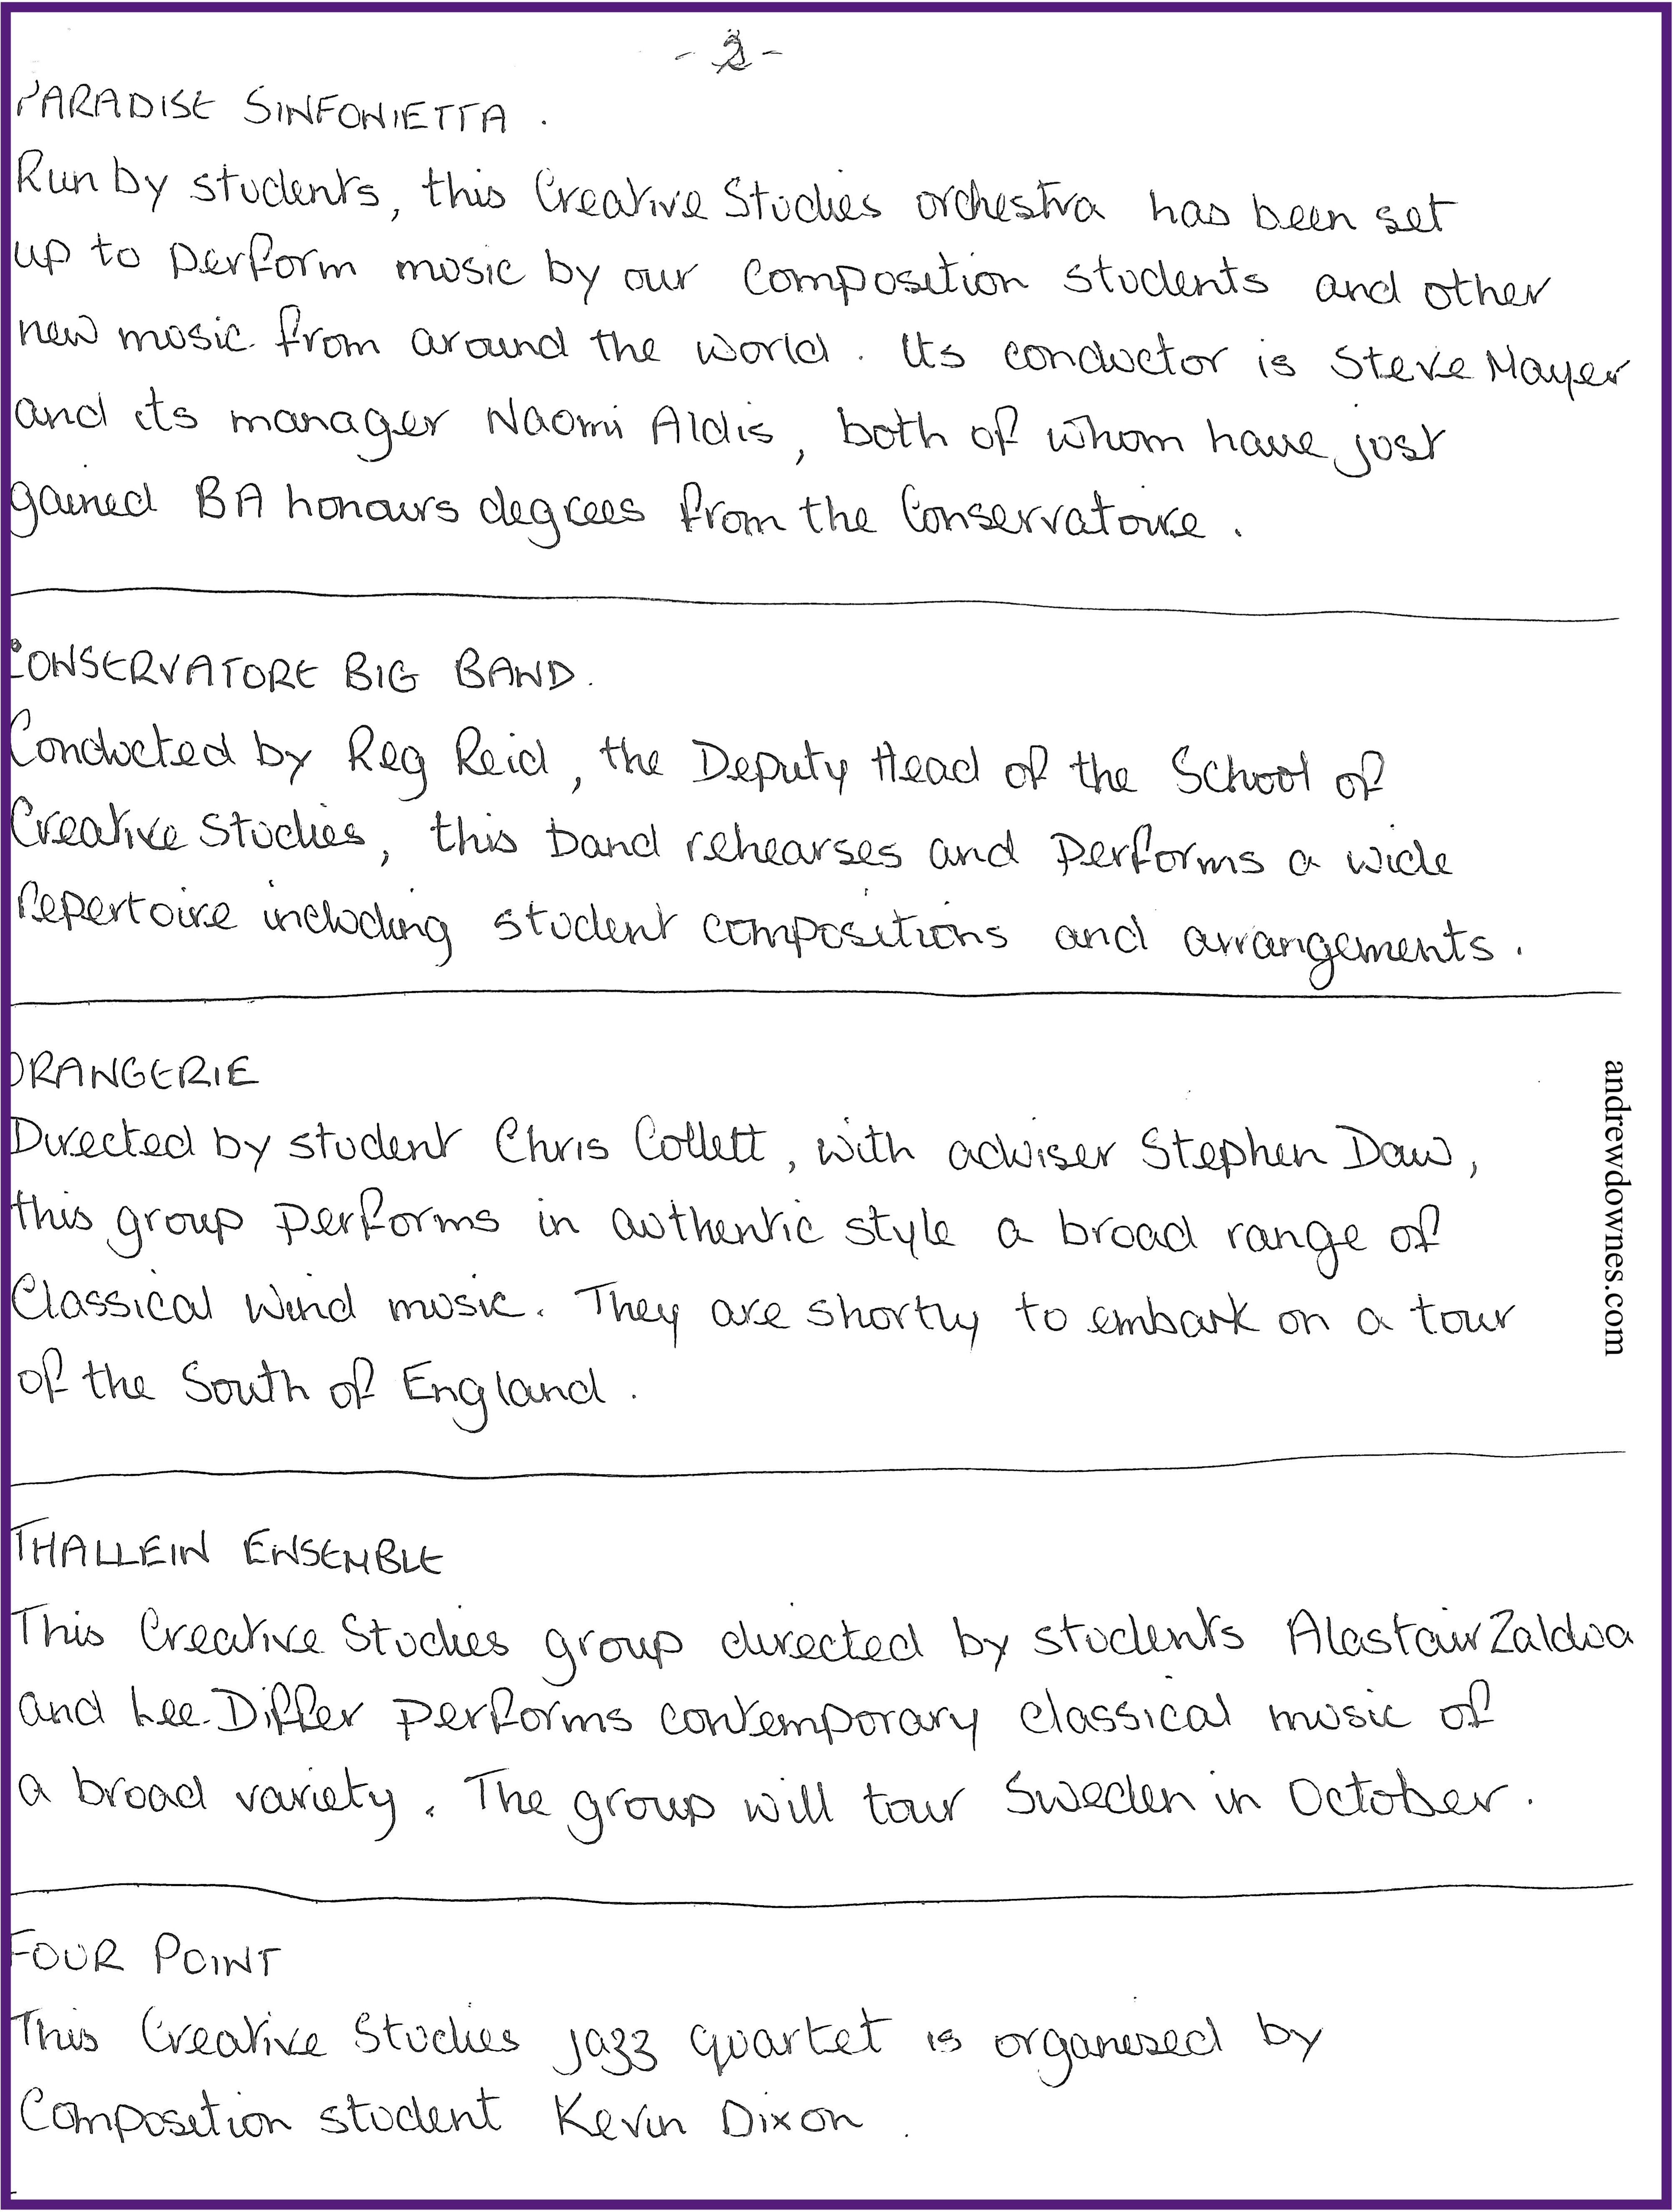 - 2 -
PARADISE SINFONIETTA .
Run by students, this Creative Studies orchestra has been set
up to perform music by our composition students and other
new music from around the world. Its conductor is Steve Mayer
and its manager Naomi Aldis, both of whom have just
gained BA honours degrees from the Conservatoire.
CONSERVATORE BIG BAND.
Conducted by Reg Reid, the Deputy Head of the School of
Creative Studies, this band rehearses and performs a wide
repertoire including student compositions and arrangements.
ORANGERIE
Directed by student Chris Collett, with adviser Stephen Daw,
this group performs in authentic style a broad range of
Classical Wind music. They are shortly to embark on a tour
of the South of England.
THALLEIN ENSEMBLE
This Creative Studies group directed by students Alastair Zaldua
and Lee Differ performs contemporary classical music of
a broad variety. The group will tour Sweden in October.
FOUR POINT
This Creative Studies jazz quartet is organised by
Composition student Kevin Dixon.
andrewdownes.com